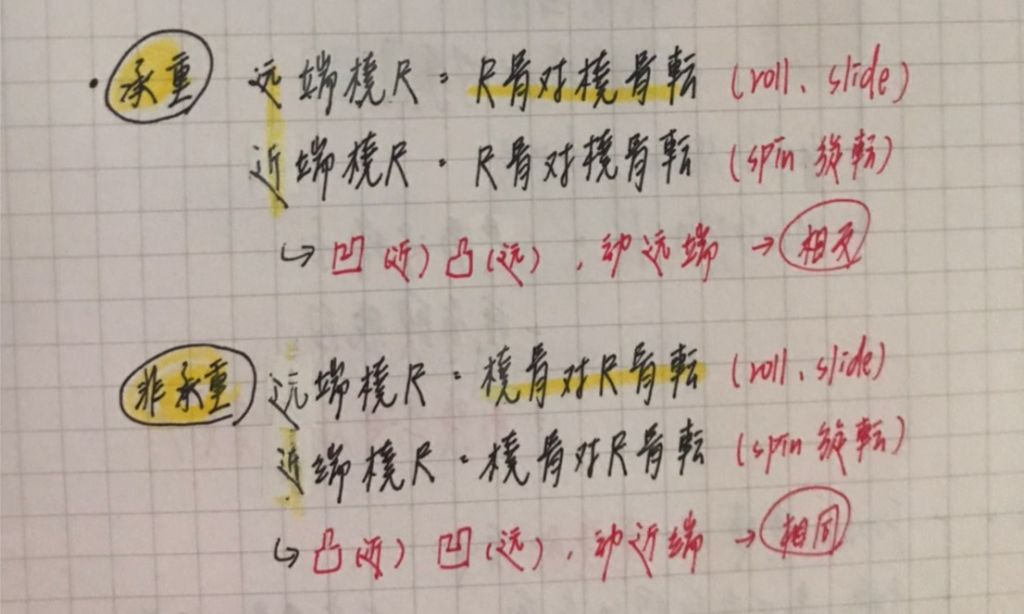 • 承重 远端桡尺：尺骨对桡骨転 (roll、slide)
近端桡尺：尺骨对桡骨転 (spin 旋転)
↳ 凹(近) 凸(远)，动远端 → 相反
非承重 远端桡尺：桡骨对尺骨転 (roll、slide)
近端桡尺：桡骨对尺骨転 (spin 旋転)
↳ 凸(近) 凹(远)，动近端 → 相同